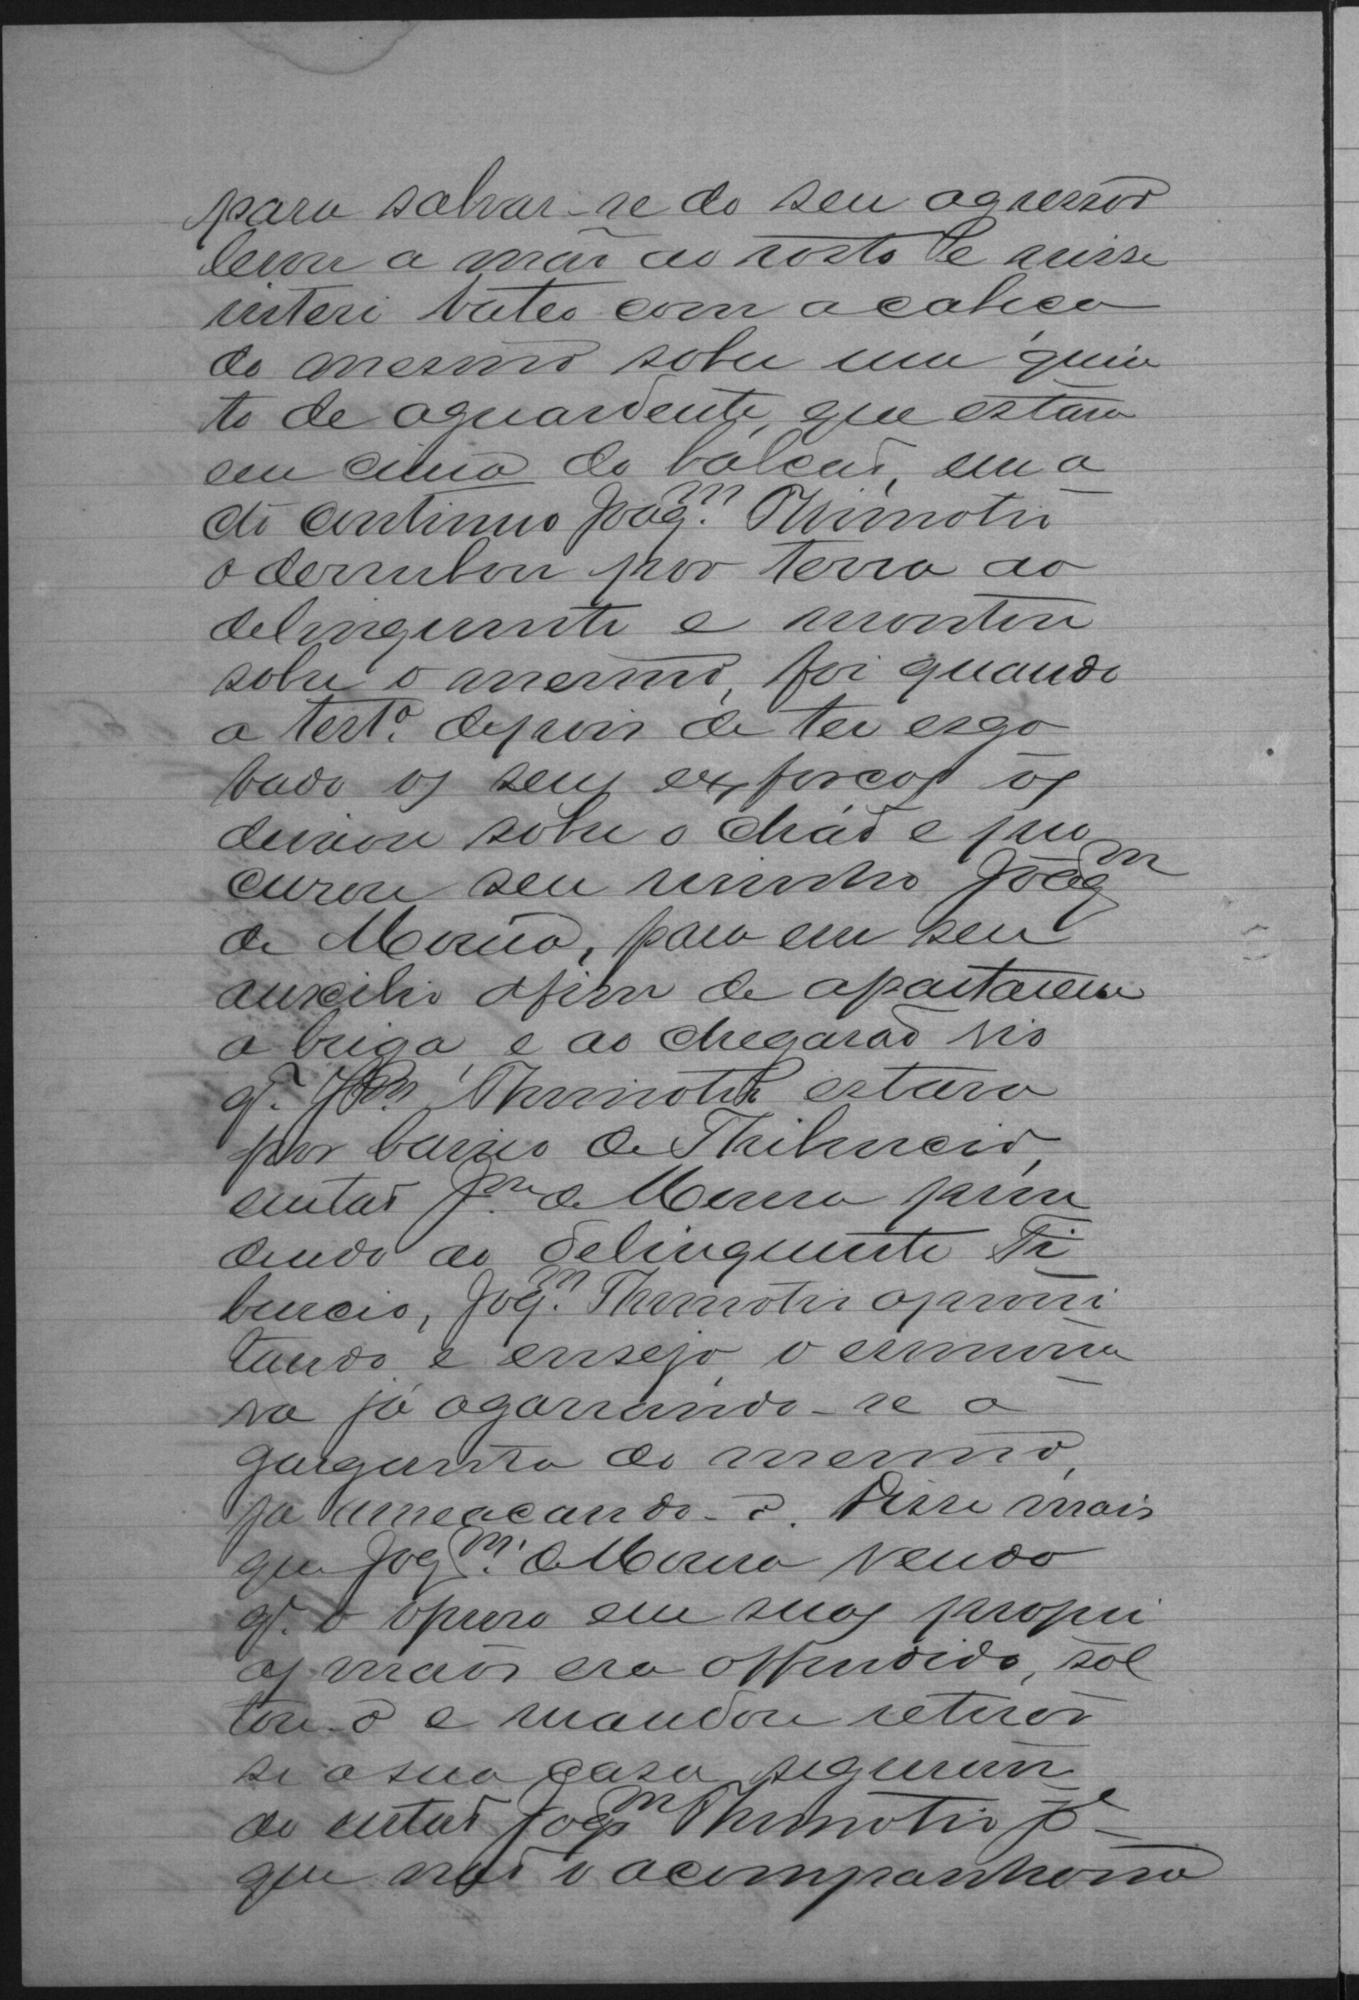 para salvar-se do seu agressor
levou a mão ao rosto e nisse
interi bateo com a cabeça
do mesmo sobre um quin
to de aguardente, que estava
em cima do balcaõ, em a
cto continuo Joaqm. Thimotio
o derrubou por terra ao
delinquente e montou
sobre o mesmo, foi quando
a testa. depois de ter esgo
tado os seus exforços os
deixou sobre o chaõ e pro
curou seu visinho Joaqm
de Moura, para em seu
auxilio afim de apartarem
a briga, e ao chegaraõ vio
q. Jm. Thimotio estava
por baixo de Thiburcio,
entaõ Jm. de Moura pren
dendo ao delinquente Ti
burcio, Joqm. Thimotio aprovei
tando e ensejo, o esmurra
va já agarrando-se a
garganta do mesmo,
ja ameaçando-o. Disse mais
que Joqm. de Moura vendo
q. o opreso em suas propri
as maõs era offendido, sol
tou-o e mandou retirar
se a sua casa, seguran
do entaõ Joqm Thimotio pa
que naõ o acompanhasse